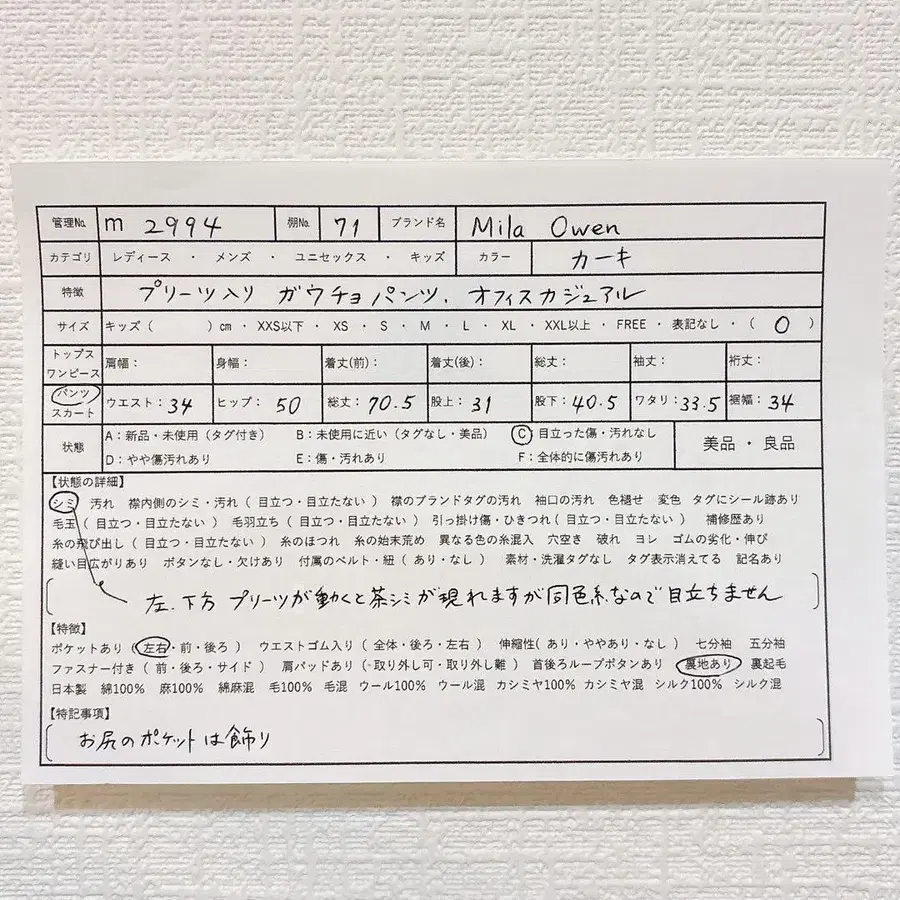 管理No. m 2994 棚No. 71 ブランド名 Mila Owen
カテゴリ レディース ・ メンズ ・ ユニセックス ・ キッズ カラー カーキ
特徴 プリーツ入り ガウチョパンツ、オフィスカジュアル
サイズ キッズ( )cm ・ XXS以下 ・ XS ・ S ・ M ・ L ・ XL ・ XXL以上 ・ FREE ・ 表記なし ・( 0 )
トップス ワンピース 肩幅: 身幅: 着丈(前): 着丈(後): 総丈: 袖丈: 裄丈:
パンツ スカート ウエスト: 34 ヒップ: 50 総丈: 70.5 股上: 31 股下: 40.5 ワタリ: 33.5 裾幅: 34
状態 A:新品・未使用(タグ付き) B:未使用に近い(タグなし・美品) C:目立った傷・汚れなし 美品 ・ 良品
D:やや傷汚れあり E:傷・汚れあり F:全体的に傷汚れあり
【状態の詳細】
シミ 汚れ 襟内側のシミ・汚れ(目立つ・目立たない) 襟のブランドタグの汚れ 袖口の汚れ 色褪せ 変色 タグにシール跡あり
毛玉(目立つ・目立たない) 毛羽立ち(目立つ・目立たない) 引っ掛け傷・ひきつれ(目立つ・目立たない) 補修歴あり
糸の飛び出し(目立つ・目立たない) 糸のほつれ 糸の始末荒め 異なる色の糸混入 穴空き 破れ ヨレ ゴムの劣化・伸び
縫い目広がりあり ボタンなし・欠けあり 付属のベルト・紐(あり・なし) 素材・洗濯タグなし タグ表示消えてる 記名あり
左、下方 プリーツが動くと茶シミが現れますが同色系なので目立ちません
【特徴】
ポケットあり(左右・前・後ろ) ウエストゴム入り(全体・後ろ・左右) 伸縮性(あり・ややあり・なし) 七分袖 五分袖
ファスナー付き(前・後ろ・サイド) 肩パッドあり(取り外し可・取り外し難) 首後ろループボタンあり 裏地あり 裏起毛
日本製 綿100% 麻100% 綿麻混 毛100% 毛混 ウール100% ウール混 カシミヤ100% カシミヤ混 シルク100% シルク混
【特記事項】
お尻のポケットは飾り